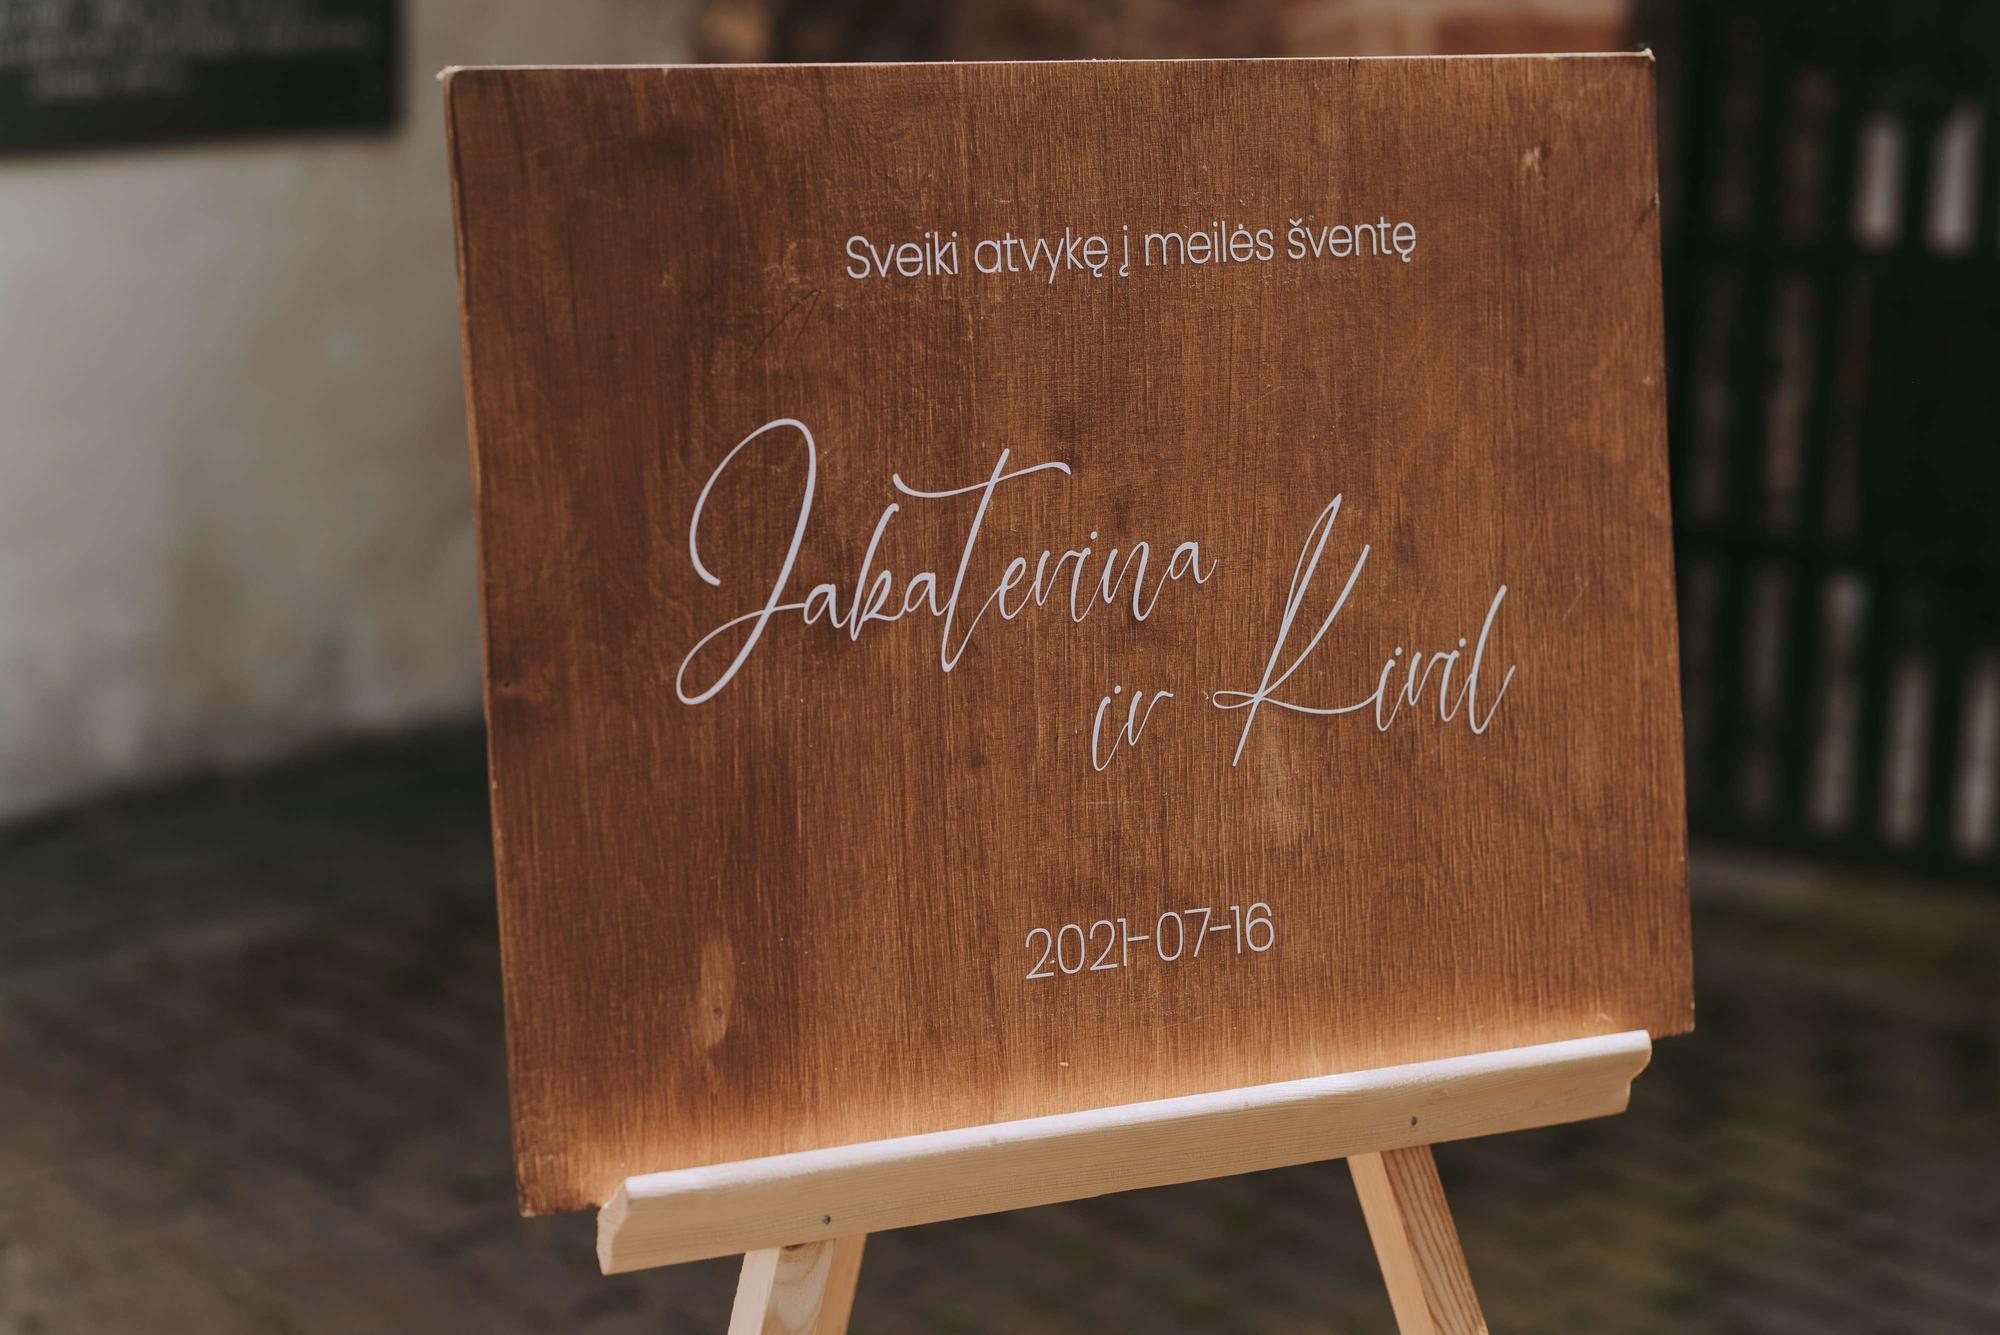 Sveiki atvykę į meilės šventę
Jakaterina
ir Kiril
2021-07-16